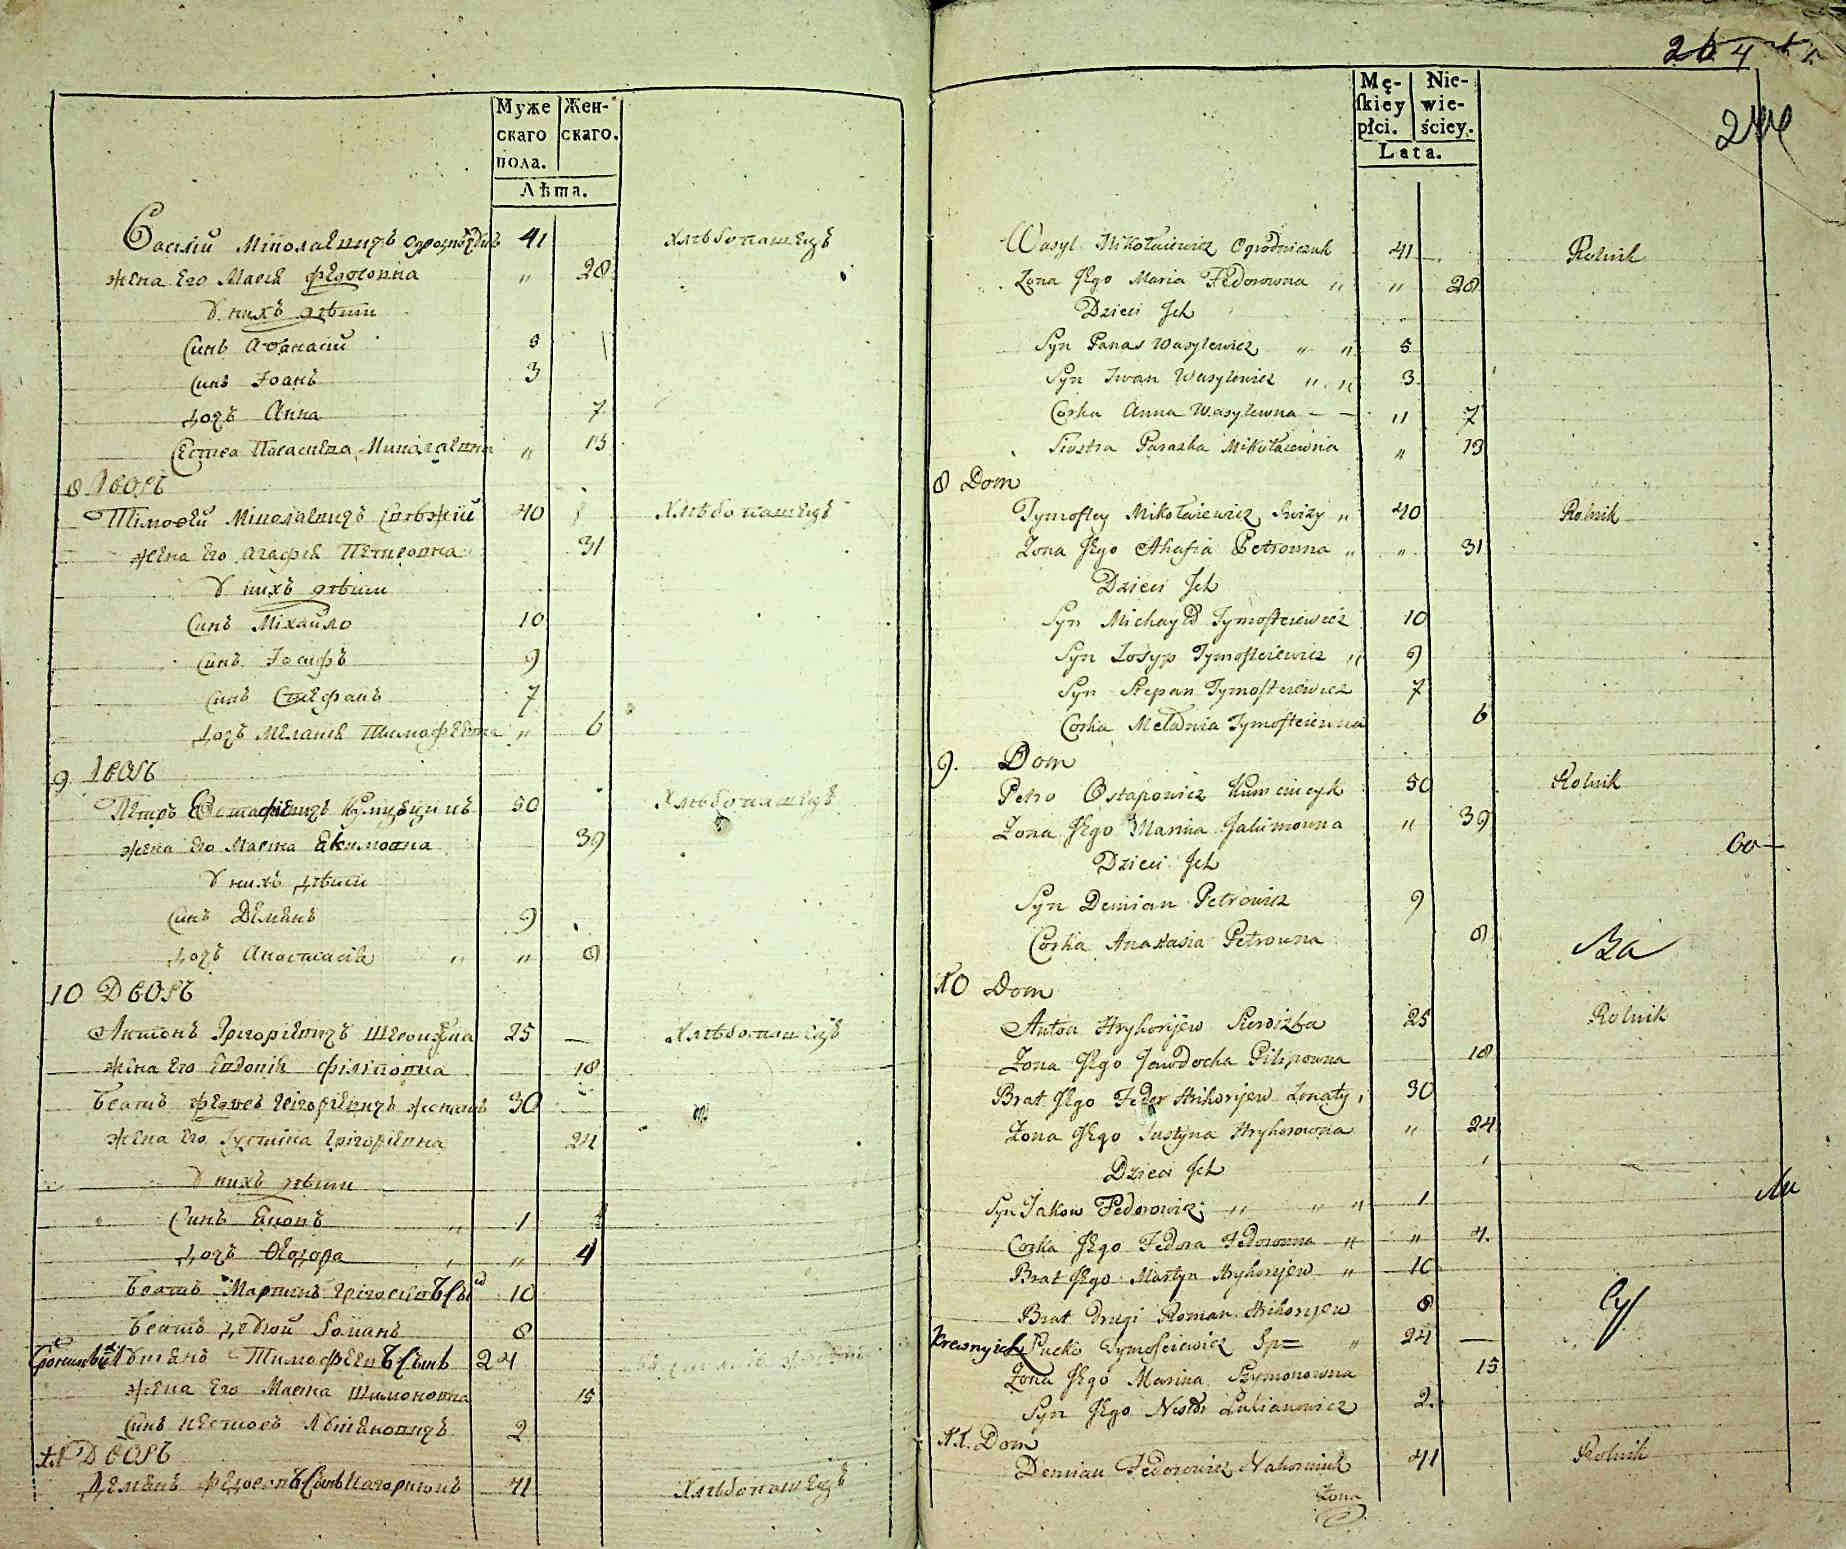 Муже
скаго
пола.
Жен-
скаго.
Лѣта.
Василій Миколаевичъ 41 Хлѣбопашецъ
жена Его Марія Федоровна " 28
У нихъ дѣти
Синъ Афанасій 5
Синъ Іоанъ 3
дочъ Анна 7
Сестра Параскева Миколаевна " 13
8 Дворъ
Тімофей Миколаевичъ 40 Хлѣбопашецъ
жена Его Агафія Петровна 31
У нихъ дѣти
Синъ Міхайло 10
Синъ Іосифъ 9
Синъ Стефанъ 7
дочъ Меланія Тимофеевна " 6
9 Дворъ
Петръ Евстафіевичъ 50 Хлѣбопашецъ
жена Его Марина Екимовна 39
У нихъ дѣти
Синъ Демянъ 9
дочъ Анастасія " " 8
10 Дворъ
Антонъ Григоріевичъ 25 — Хлѣбопашецъ
жена Его Евдокія Філіповна 18
Братъ Федоръ Григоріевичъ 30
жена Его Іустина Григоріевна 24
У нихъ дѣти
Синъ Яковъ " 1
дочъ Феодора " " 4
Братъ Мартинъ 10
Братъ другой Романъ 8
Тимофеевъ Сынъ 24
жена Его Марина Шимоновна 15
Синъ Несторъ 2
11 Дворъ
Демянъ 41 Хлѣбопашецъ
264
244
Mę-
skiey
płci.
Nie-
wie-
ściey.
Lata.
Wasyl Mikołaiewicz Ogrodniczuk 41 Rolnik
Żona Jego Maria Fedorowna " " 28
Dzieci Jch
Syn Panas Wasylewicz " " 5
Syn Iwan Wasylewicz " " 3
Corka Anna Wasylewna - - " 7
Siostra Paraska Mikołaiewna " 13
8 Dom
Tymoftey Mikołaiewicz " 40 Rolnik
Żona Jego Ahafia Petrowna " " 31
Dzieci Jch
Syn Michayło Tymofteiewicz 10
Syn Iosyp Tymofteiewicz " 9
Syn Stepan Tymofteiewicz 7
Corka Mełania Tymofteiewna 6
9. Dom
Petro Ostapowicz 50 Rolnik
Żona Jego Marina Jakimowna " 39
Dzieci Jch
Syn Demian Petrowicz 9
Corka Anastasia Petrowna 8
За
10 Dom
Anton Hryhorijew 25 Rolnik
Żona Jego Jawdocha Pilipowna 18
Brat Jego Fedor Hrihorijew Żonaty, 30
Żona Jego Justyna Hryhorowna " 24
Dzieci Jch
Syn Jakow Fedorowicz " " " 1
Corka Jego Fedora Fedorowna " " 4.
Brat Jego Martyn Hryhorijew " 10
Brat Drugi Roman Hrihorijew 8
Krewnyich Tymofteiewicz " 24 —
Żona Jego Marina Szymonowna 15
Syn Jego Nestor 2.
11. Dom
Demian Fedorowicz 41 Rolnik
Żona